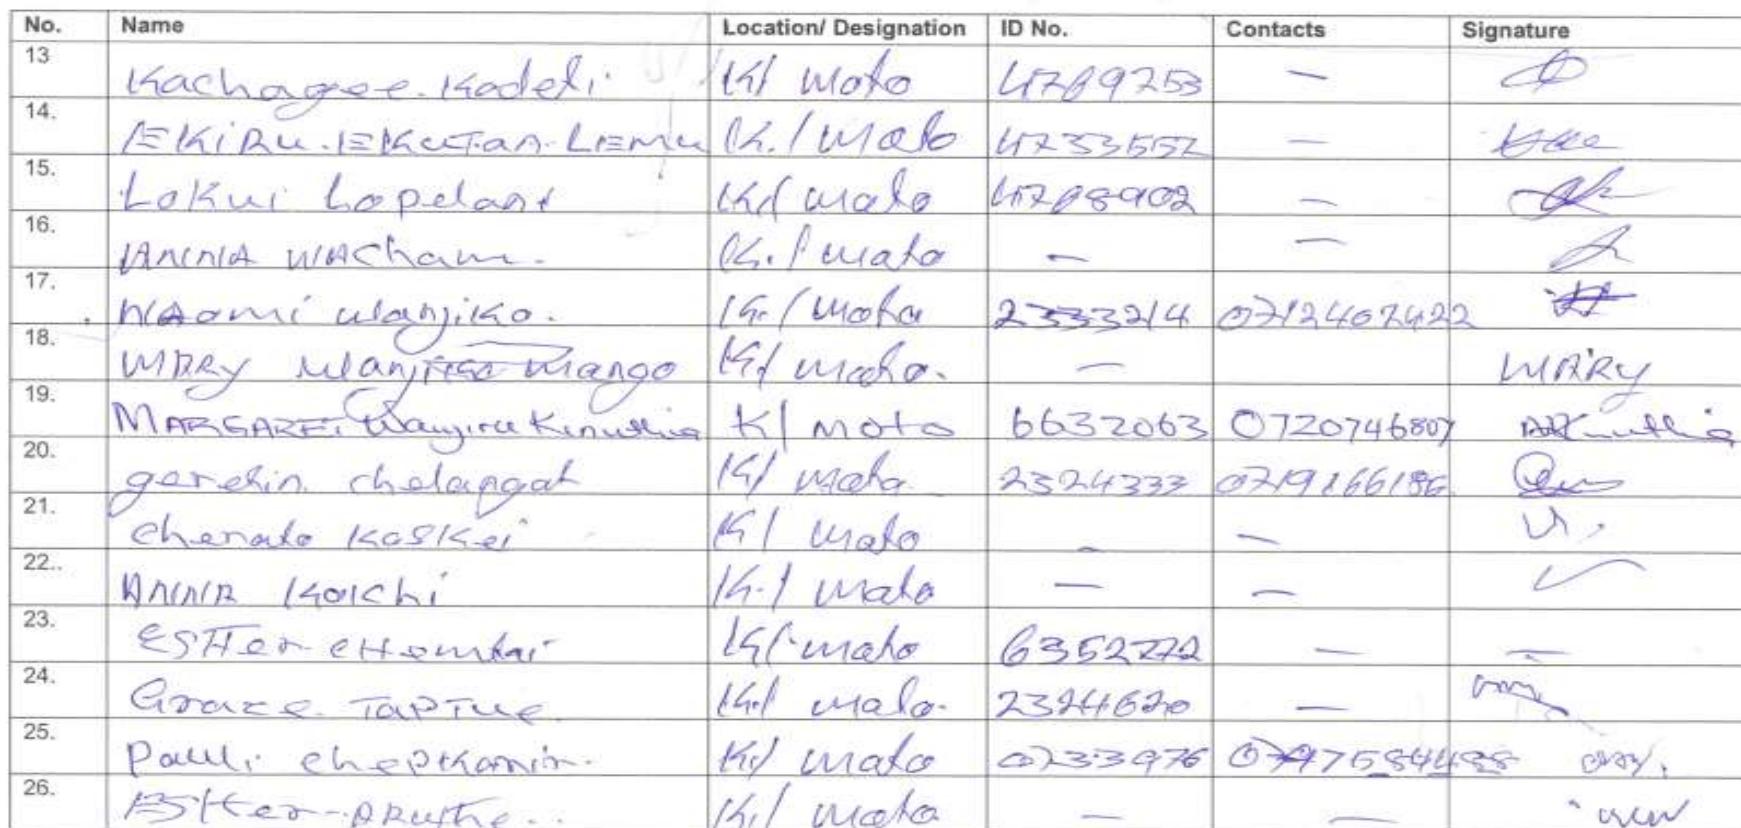 No. Name Location/ Designation ID No. Contacts Signature
13 Kachagee Kadeli K/ Moto 4769753 —
14. EKiRu. EKUTAN. LEMU K./ Moto 4733552 —
15. Lokui Lopelani K/ Moto 4768902 —
16. ANNA WACham. K./ Moto — —
17. NAomi wanjiko. K./ Moto 2333214 0712407422
18. MARY Wanjiko Mango K/ Moto. — MARY
19. MARGARET. Wanjiru Kinuthia K/ Moto 6632063 0720746807
20. gerehin chelangat K/ Moto 2324333 0719166186
21. Cherato KosKei K/ Moto - —
22.. ANNA Koichi K./ Moto — —
23. ESTHer CHemtai K/ Moto 6352772 — —
24. Grace TAPTUE K/ Moto. 2324620 —
25. Pauli Chepkamin. K/ Moto 0233976
26. K./ Moto — —